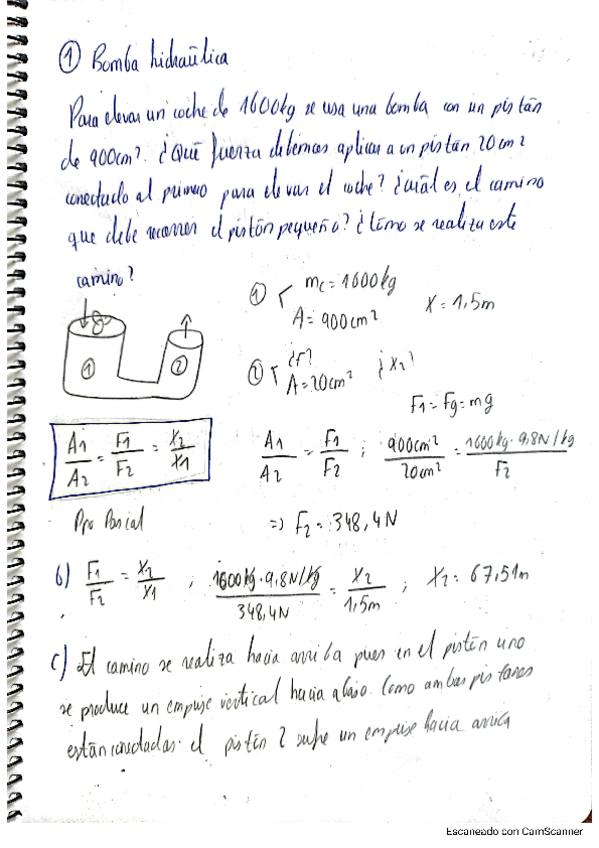 ① Bomba hidraúlica
Para elevar un coche de 1600kg se usa una bomba con un pistón
de 900cm². ¿Qué fuerza debemos aplicar a un pistón 20cm²
conectado al primero para elevar el coche? ¿Cuál es el camino
que debe recorrer el pistón pequeño? ¿Cómo se realiza este
camino?
① mc = 1600kg
A = 900cm²
x = 1,5m
② ¿F?
A = 20cm²
¿x₂?
F1 = Fg = mg
① ②
A1/A2 = F1/F2 = x2/x1
A1/A2 = F1/F2 ; 900cm²/20cm² = 1600kg·9,8N/kg/F2
Parcial
=> F2 = 348,4N
b) F1/F2 = x2/x1 ; 1600kg·9,8N/kg/348,4N = x2/1,5m ; x2 = 67,51m
c) El camino se realiza hacia arriba pues en el pistón uno
se produce un empuje vertical hacia abajo. Como ambas pistones
están conectadas el pistón 2 sufre un empuje hacia arriba
Escaneado con CamScanner